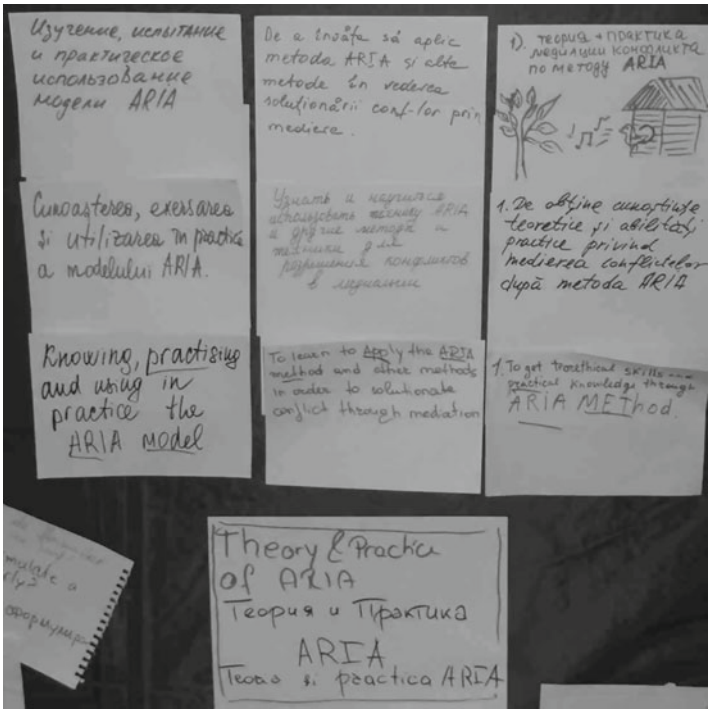 Изучение, испытание
и практическое
использование
модели ARIA
Cunoașterea, exersarea
și utilizarea în practică
a modelului ARIA.
Knowing, practising
and using in
practice the
ARIA model
De a învăța să aplic
metoda ARIA și alte
metode în vederea
soluționării conf-lor prin
mediere.
Узнать и научиться
использовать технику ARIA
и другие методы и
техники для
разрешения конфликтов
в медиации
To learn to Apply the ARIA
method and other methods
in order to solutionate
conflict through mediation
1). теория + практика
медиации конфликта
по методу ARIA
1. De obține cunoștințe
teoretice și abilități
practice privind
medierea conflictelor
după metoda ARIA
1. To get teorethical skills
practical knowledge through
ARIA METhod.
mulate a
rly?
сформулиро
Theory & Practice
of ARIA
Теория и Практика
ARIA
și practica ARIA